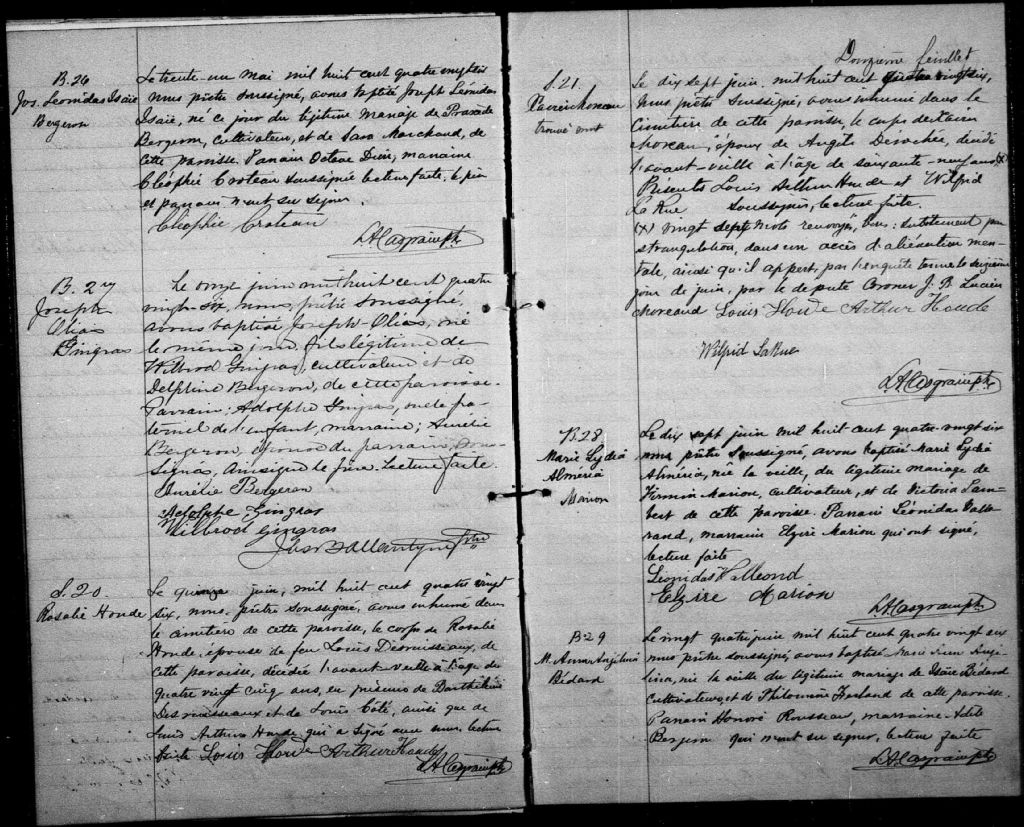 B. 26
Jos. Leonidas Isaïe
Bergeron
Le trente-un mai mil huit cent quatre vingt six
nous prêtre soussigné, avons baptisé Joseph Léonidas
Isaïe, né ce jour du légitime mariage de
Bergeron, cultivateur, et de Sara Marchand, de
cette paroisse. Parrain Octave marraine
Cléophie Croteau soussignée lecture faite. le père
et parrain n'ont su signer.
Cléophie Croteau
L. A. Casgrain ptre
B. 27
Joseph
Olias
Gingras
Le vingt juin mil huit cent quatre
vingt-six, nous, prêtre soussigné,
avons baptisé Joseph-Olias, né
le même jour, fils légitime de
Wilbrod Gingras, cultivateur et de
Delphine Bergeron, de cette paroisse.
Parrain: Adolphe Gingras, oncle pa-
ternel de l'enfant, marraine; Aurélie
Bergeron, épouse du parrain, sous-
signés, ainsi que le père. Lecture faite.
Aurélie Bergeron
Adolphe Gingras
Wilbrod Gingras
Jos Ballantyne Ptre
S. 20.
Rosalie Houde
Le quinze juin, mil huit cent quatre vingt
six, nous prêtre soussigné, avons inhumé dans
le cimetière de cette paroisse, le corps de Rosalie
Houde, épouse de feu Louis Desruisseaux, de
cette paroisse, décédée l'avant-veille à l'âge de
quatre vingt cinq ans, en présence de
Desruisseaux et de Louis Côté, ainsi que de
Louis Arthur Houde qui a signé avec nous, lecture
faite Louis Houde Arthur Houde
L. A. Casgrain ptre
Douzième feuillet
S. 21.
trouvé mort
Le dix sept juin, mil huit cent quatre vingt six,
nous prêtre soussigné, avons inhumé dans le
cimetière de cette paroisse, le corps de
époux de Angèle Desrochers, décédé
l'avant-veille à l'âge de soixante-neuf ans (x)
Présents Louis Arthur Houde et Wilfrid
LaRue soussignés, lecture faite.
(x) vingt sept mots renvoyés, bon: subitement par
strangulation, dans un accès d'aliénation men-
tale, ainsi qu'il appert, par l'enquête tenue le seizième
jour de juin, par le député Coroner J. B. Lucien
Louis Houde Arthur Houde
Wilfrid LaRue
L. A. Casgrain ptre
B. 28
Marie Lydia
Alméria
Marion
Le dix sept juin mil huit cent quatre-vingt six
nous prêtre soussigné, avons baptisé Marie Lydia
Alméria, née la veille, du légitime mariage de
Firmin Marion, cultivateur, et de Victoria Lam-
bert de cette paroisse. Parrain Léonidas
marraine Elzire Marion qui ont signé,
lecture faite
Léonidas
Elzire Marion
L. A. Casgrain ptre
B 29
M. Anna Angelina
Bédard
Le vingt quatre juin mil huit cent quatre vingt six
nous prêtre soussigné, avons baptisé Marie Anna Ange-
lina, née la veille du légitime mariage de Isaïe Bédard
cultivateur, et de Philomène de cette paroisse.
Parrain Honoré Rousseau, marraine
Bergeron qui n'ont su signer, lecture faite
L. A. Casgrain ptre